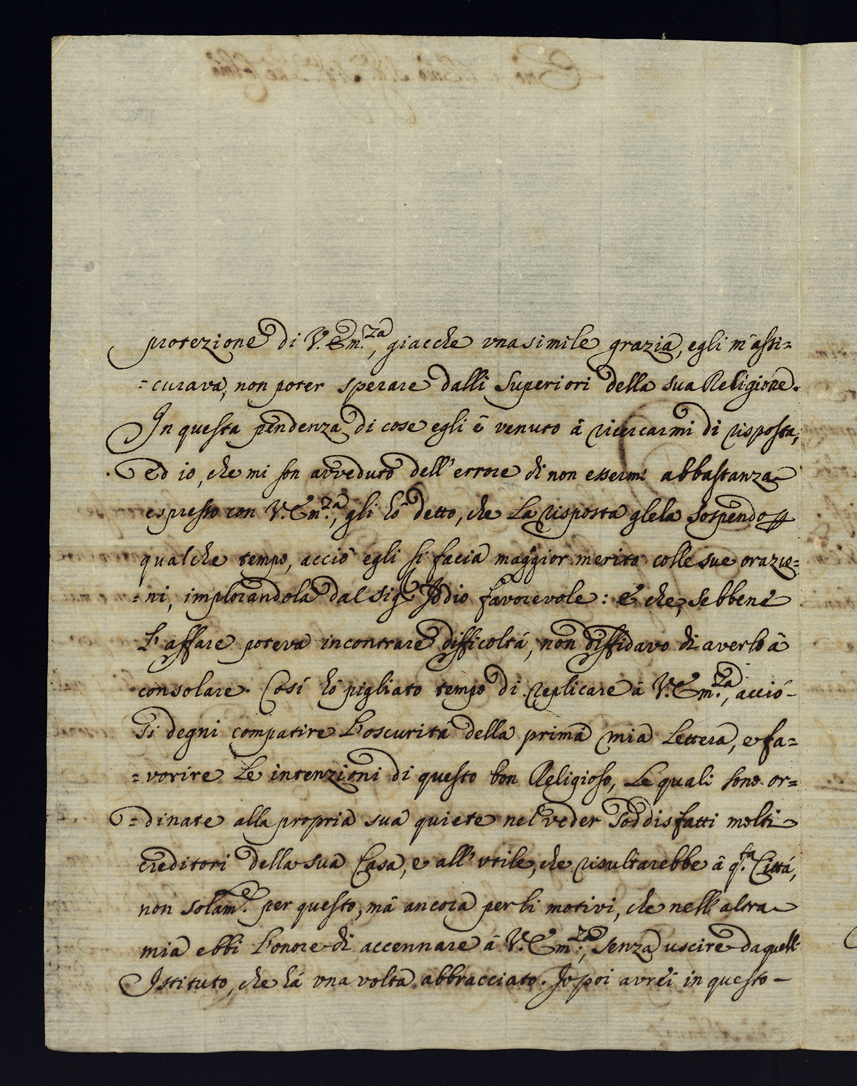 protezione di V. Em.za, giacche vna simile grazia, egli m'assi=
=curava, non poter sperare dalli Superiori della sua Religione.
In questa pendenza di cose egli è venuto à ricercarmi di risposta,
ed io, che mi son avveduto dell'errore di non essermi abbastanza
espresso con V. Em.za, gli hò detto, che la risposta glela sospendo p
qualche tempo, acciò egli si facia maggior merito colle sue orazio=
=ni, implorandola dal Sig.r Iddio favorevole: E che, sebbene
l'affare poteva incontrare difficoltá, non diffidavo di averlo à
consolare. Cosí hò pigliato tempo di replicare à V. Em.za, acció
si degni compatire l'oscurita della prima mia lettera, e fa=
=vorire le intenzioni di questo bon Religioso, le quali sono or=
=dinate alla propria sua quiete nel veder soddisfatti molti
creditori della sua Casa, e all'vtile, che risultarebbe à q.ta Cittá,
non solam.e per questo, mà ancora per li motivi, che nell'altra
mia ebbi l'onore di accennare à V. Em.za, senza uscire da quell'
Istituto, che hà vna volta abbracciato. Io poi avrei in questo